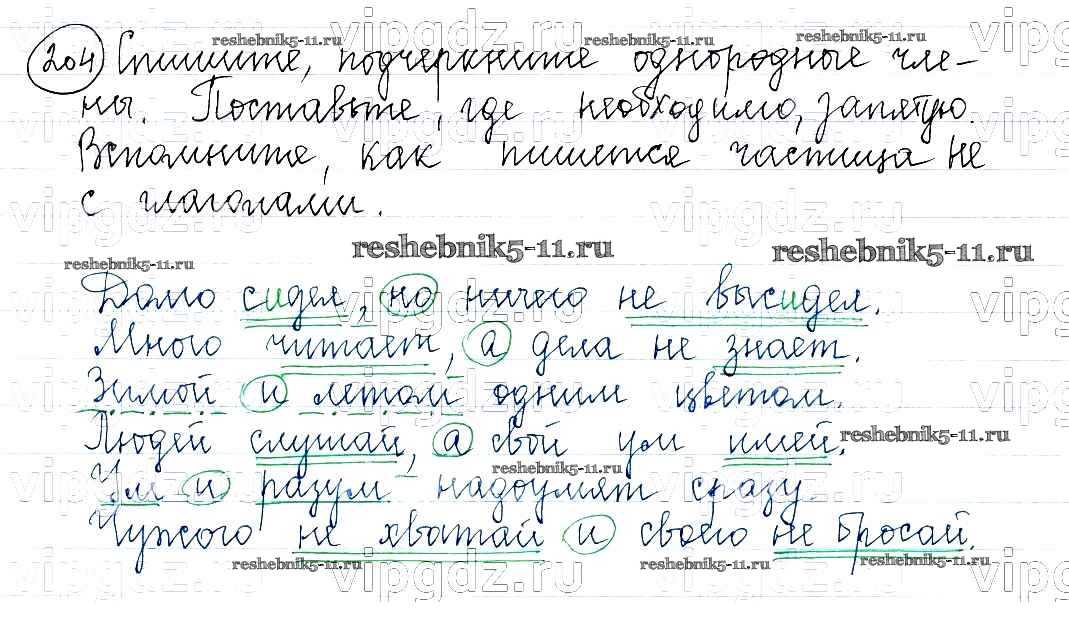 204 Спишите, подчеркните однородные чле-
ны. Поставьте, где необходимо, запятую.
Вспомните, как пишется частица не
с глаголами.
Долго сидел, но ничего не высидел.
Много читает, а дела не знает.
Зимой и летом одним цветом.
Людей слушай, а свой ум имей.
Ум и разум надоумят сразу.
Чужого не хватай и своего не бросай.
vipgdz.ru
reshebnik5-11.ru